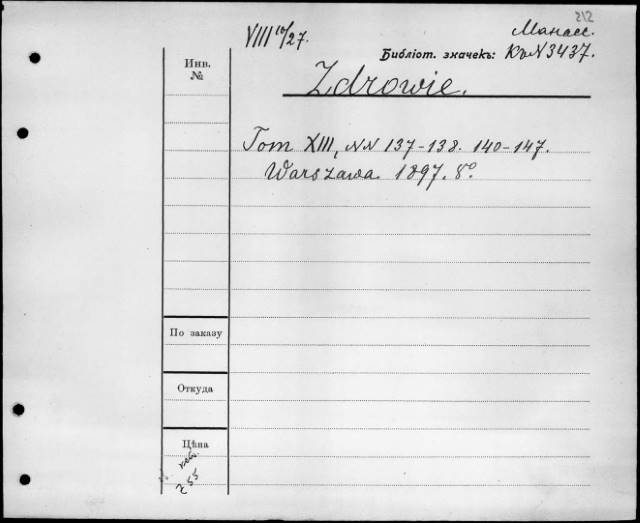 212
VIII 10/27.
Манасс.
Библіот. значекъ: Къ N 3437.
Инв.
№
Zdrowie.
Tom XIII, NN 137-138. 140-147.
Warszawa. 1897. 8°
По заказу
Откуда
Цѣна
255